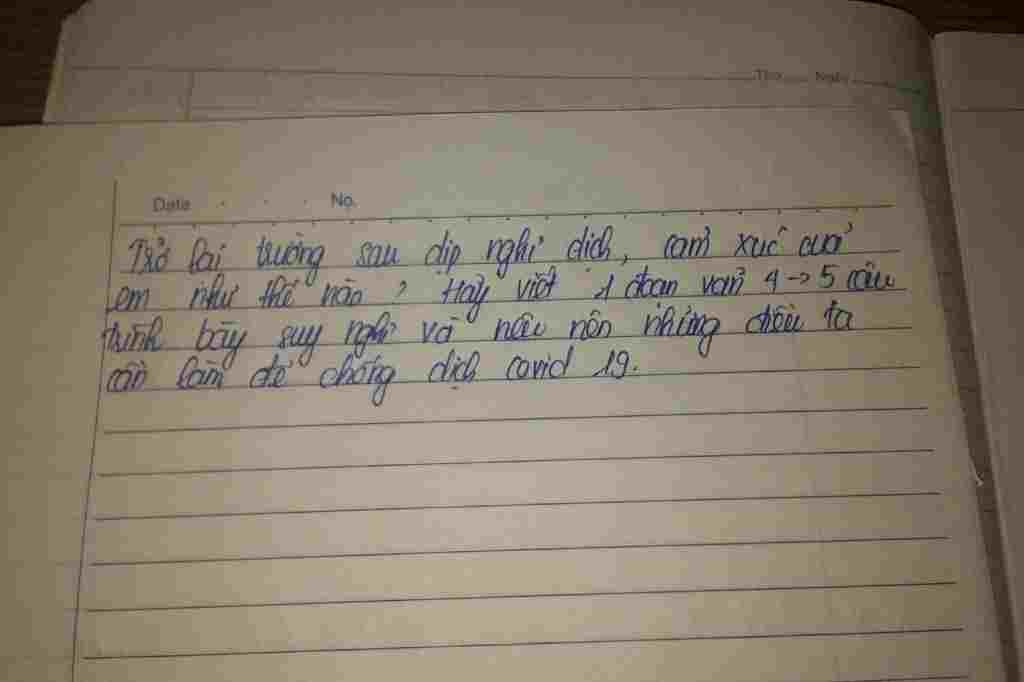 Thứ Ngày
Date No.
Trở lại trường sau dịp nghỉ dịch, cảm xúc của
em như thế nào? Hãy viết 1 đoạn văn 4 → 5 câu
trình bày suy nghĩ và nêu nên những điều ta
cần làm để chống dịch covid 19.